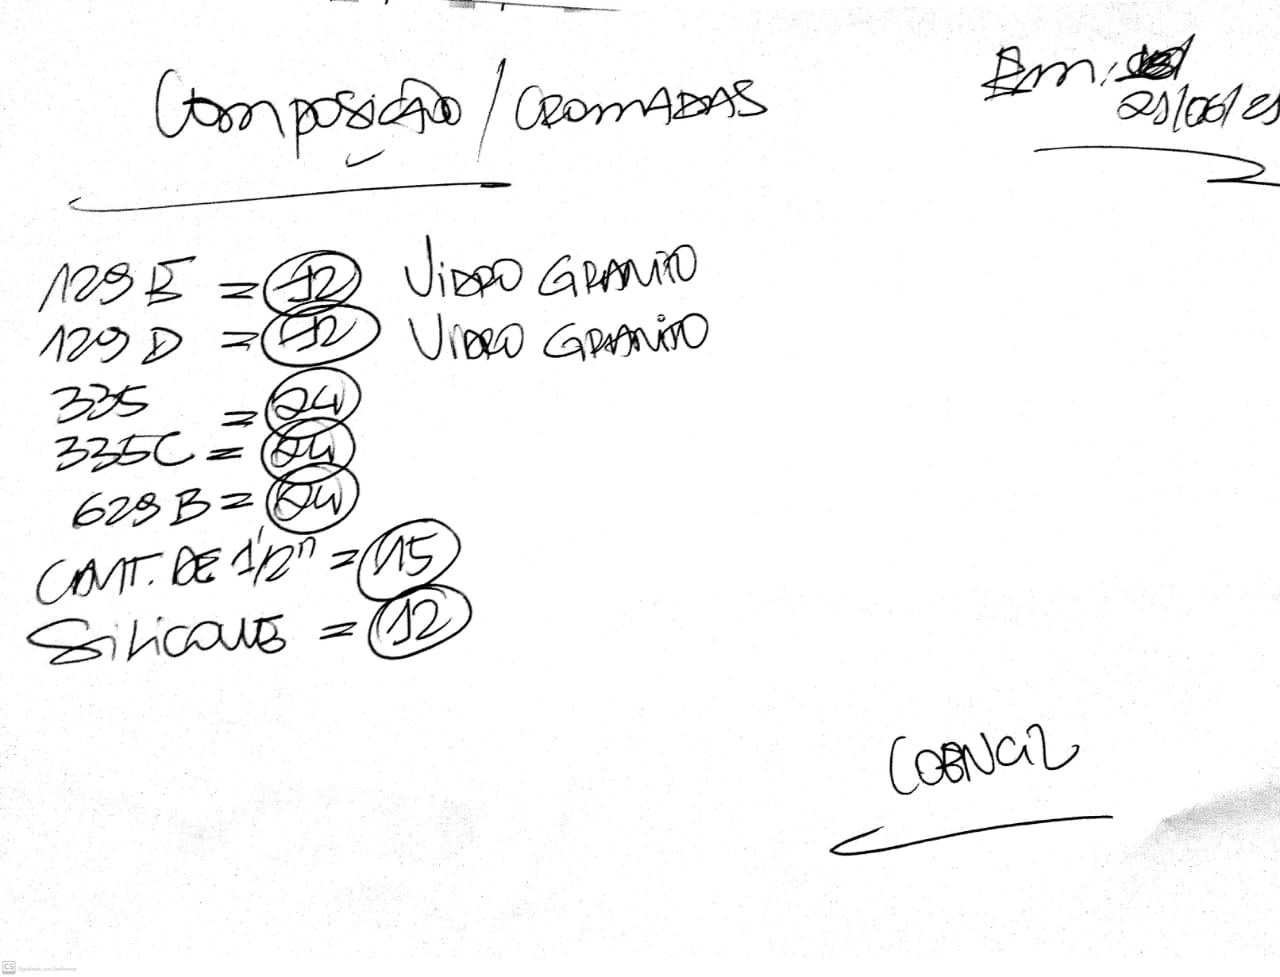 Composição / CROMADAS
Em:
21/06/21
129 E = 12 VIDRO GRANITO
129 D = 12 VIDRO GRANITO
335 = 24
335C = 24
629 B = 24
CANT. DE 1/2" = 15
SILICONE = 12
CS Digitalizado com CamScanner